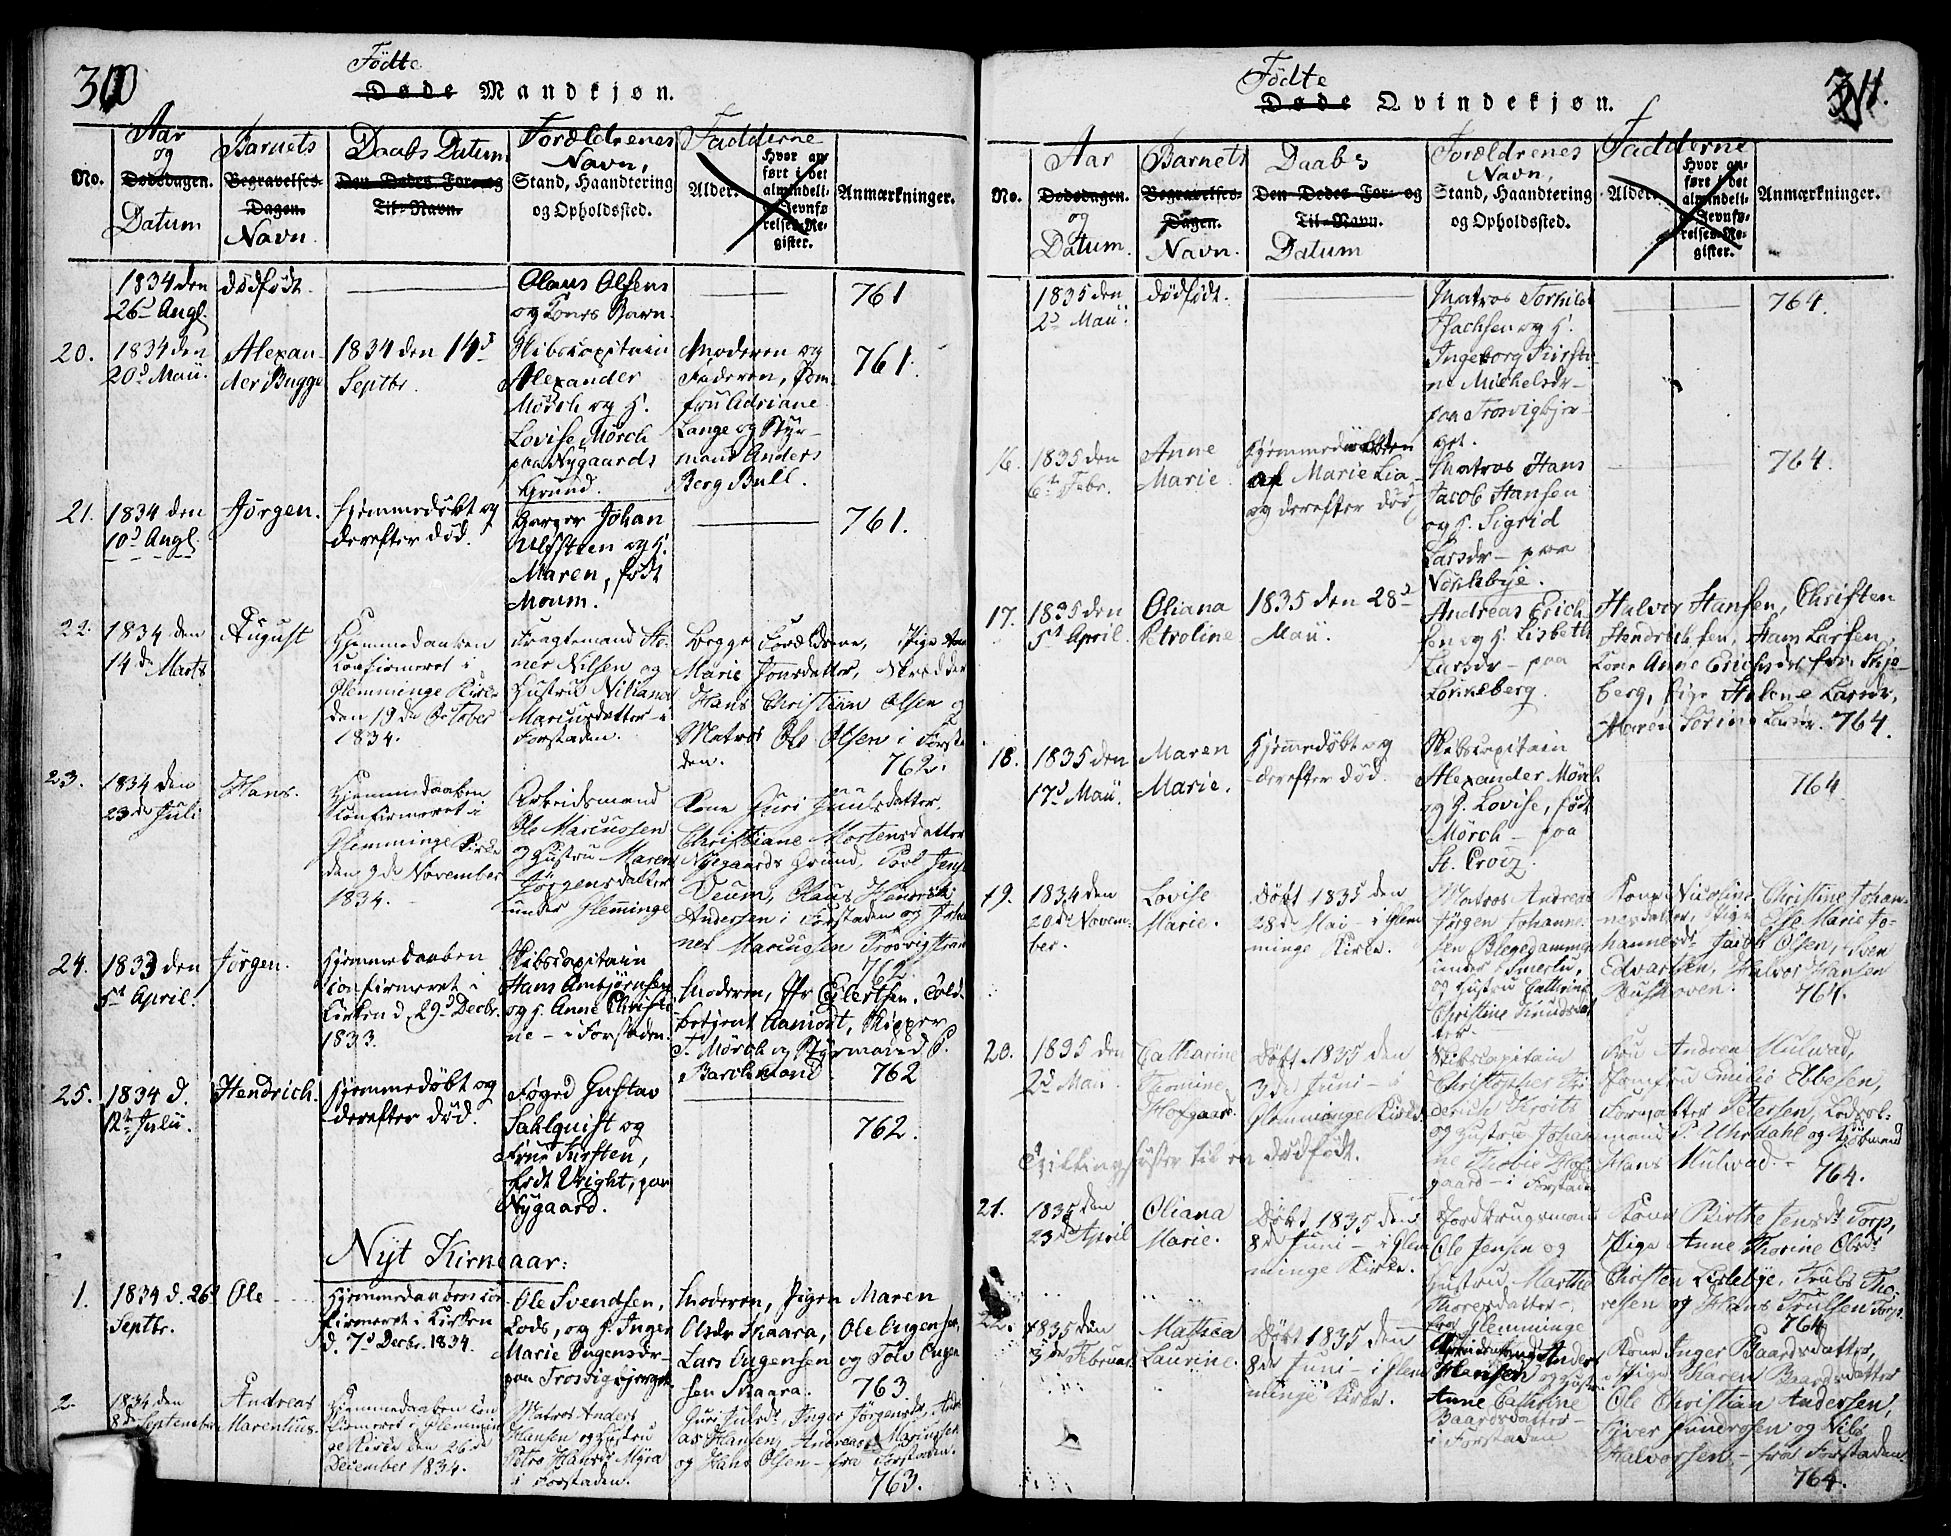 310
Fødte
Døde Mandkjøn.
No.
Aar
og
Dødsdagen.
Datum
Barnets
Begravelses-
Dagen.
Navn.
Daabs Datum
Den Dødes For- og
Til-Navn.
Forældrenes
Navn,
Stand, Haandtering
og Opholdssted.
Fadderne
Alder.
Hvor an-
ført i det
almindeli-
ge Jevnfø-
relses-Re-
gister.
Anmærkninger.
1834 den
26d Augl.
dødfødt.
Olaus Olsens
og Tones Barn.
761
20.
1834 den
20d Maii.
Alexan-
der Bugge
1834 den 14d
Septbr.
Skibscapitain
Alexander
Mørch og H.
Lovise Mørch
paa Nygaards
Grund.
Moderen og
Faderen, Jom-
fru Adriane
Lange og Styr-
mand Anders
Berg Bull.
761.
21.
1834 den
10d Augl.
Jørgen.
Hjemmedøbt og
derefter død.
Johan
og H.
Maren, født
Moum.
761.
22.
1834 den
14de Marts
August
Hjemmedaaben
Confirmeret i
Glemminge Kirke
den 19de October
1834.
Nilsen og
Hustru Niliana
Marcusdatter i
Forstaden.
Begge Forældrene, Pige
Marie Jonsdatter,
Hans Christian Olsen og
Matros Ole Olsen i Forsta
den.
762.
23.
1834 den
23de Juli
Hans.
Hjemmedaaben
Confirmeret i
Glemminge Kirke
den 9de November
1834.
Arbeidsmand
Ole Marcussen
og Hustru Maren
Jørgensdatter
under Glemminge
Kone Guri Juulsdatter,
Christiane Mortensdatter
Nygaards Grund, Poul Jens
Deum, Olaus
Andersen i Forstaden og Johan
nes Marcussen Trosvigstran
762.
24.
1833 den
5d April.
Jørgen.
Hjemmedaaben
Confirmeret i
Kirken d. 29d Decbr.
1833.
Skibscapitain
Hans Arnbjørnsen
og H. Anne Christi-
ne - i Forstaden.
Moderen, Fr Eilertsen, Told-
betjent Aamodt, Skipper
T. Mørch og Styrmand P.
762
25.
1834 d.
12t Julii.
Hendrich.
Hjemmedøbt og
derefter død.
Foged Gustav
Sahlquist og
Frue Kirsten,
født Wright, paa
Nygaard.
762.
Nyt Kirkeaar:
1.
1834 d. 26d
Septbr.
Ole
Hjemmedaaben con
firmeret i Kirken
d. 7d Decbr. 1834.
Ole Svendsen,
Lods, og H. Inger
Marie Eugensdr-
paa Trosvigbjerget
Moderen, Pigen Maren
Olsdr Skaara, Ole Eugensen,
Lars Eugensen og Tolv Eugen
sen Skaara.
763.
2.
1834 den
8de September
Andreas
Marentius.
Hjemmedaaben Con
firmeret i Glemmin
ge Kirke den 26de
December 1834.
Matros Anders
Hansen og Hustru
i Forstaden.
Guri Julsdr, Inger Jørgensdr, Andre
as Hansen, Andreas
og Hans Olsen - fra Forstaden.
763.
311.
Fødte
Døde Qvindekjøn.
No.
Aar
Dødsdagen.
og
Datum.
Barnets
Begravelses-
Dagen.
Navn.
Daabs
Den Dødes For- og
Til-Navn.
Datum
Forældrenes
Navn,
Stand, Haandtering
og Opholdssted.
Fadderne
Alder.
Hvor an-
ført i det
almindeli-
ge Jevnfø-
relses-Re-
gister.
Anmærkninger.
1835 den
2d Maii.
dødfødt.
Matros Torkild
Isachsen og H.
Ingeborg Kirsti-
ne Michelsdr-
paa Trosvigbjer-
get.
764.
16.
1835 den
6te Febr.
Anne
Marie.
Hjemmedøbt
af Marie Lia
og derefter død
Matros Hans
Jacob Hansen
og H. Sigrid
Larsdr - paa
764.
17.
1835 den
5d April.
Oliana
Petroline
1835 den 28d
Maii.
Andreas Erich
sen og H. Lisbeth
Larsdr - paa
Lønneberg.
Halvor Hansen, Christen
Hendrichsen, Hans Larsen,
Kone Anne Erichsdr fra Skje-
berg, Pige Helene Larsdr,
Maren Sørine Larsdr. 764.
18.
1835 den
17d Maii.
Maren
Marie.
Hjemmedøbt og
derefter død.
Skibscapitain
Alexander Mørch
og H. Lovise, født
Mørch - paa
St. Croix.
764
19.
1834 den
20de Novem-
ber.
Lovise
Marie.
Døbt 1835 den
28de Mai - i Glem
minge Kirke.
Matros Andreas
Jørgen Johanne-
sen Blegedammen
under Smertu,
og Hustru Cathrine
Christine Knudsdat
ter.
Kone Nicoline Christine Johan-
nesdatter, Pige Else Marie Jo-
hannesdr, Jacob Olsen, Iver
Edvardsen, Halvor Hansen
764.
20.
1835 den
2d Maii
Catharine
Thomine
Hofgaard.
Døbt 1835 den
3de Juni - i
Glemminge Kirke.
Skibscapitain
Christopher Fri
derich Kroits
og Hustru Johan
ne Thobie Hof-
gaard - i Forstaden
Fru Andrea Hulwad,
Jomfru Emilie Ebbesen,
Petersen,
mand P. Uhrdahl og
Hans Hulwad.
764.
Tvillingsøster til en dødfødt.
21.
1835 den
23de April
Oliana
Marie.
Døbt 1835 den
8de Juni - i Glem
minge Kirke.
Jordbrugsmand
Ole Jensen og
Hustru Marthe
Thoresdatter -
fra Glemminge
Kone Birthe Jensdr Torp,
Pige Anne Thorine Olsdr
Christen Lislebye, Truls Tho-
resen og Hans Trulsen Torp.
764
22.
1835 den
3de Februar
Mathea
Laurine.
Døbt 1835 den
8de Juni - i Glem
minge Kirke.
Arbeidsmand Anders
Hansen og Hustru
Anne Cathrine
Baardsdatter -
i Forstaden
Kone Inger Baardsdatter,
Pige Karen Baardsdatter
Ole Christian Andersen,
Iver Gundersen og Nils
Halvorsen - fra Forstaden
764.